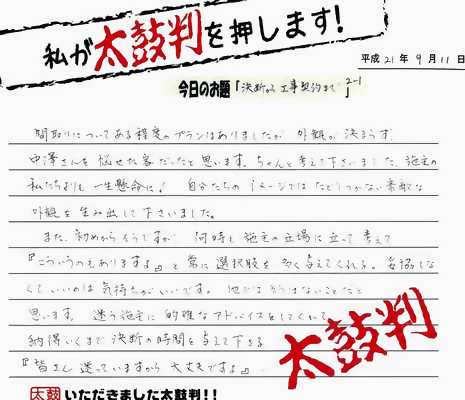 私が太鼓判を押します!
平成21年9月11日
今日のお題「決断から工事契約まで 2-1」
間取りについてある程度のプランはありましたが 外観が決まらず
中澤さんを悩せた客だったと思います。ちゃんと考えて下さいました。施主の
私たちよりも一生懸命に! 自分たちのイメージではたどりつかない素敵な
外観を生み出して下さいました。
また、初めからそうですが 何時も施主の立場に立って考えて
『こういうのもありますよ』と常に選択肢を多く与えてくれる。妥協しな
くていいのは気持ちがいいです。他ではそうはないことだと
思います。迷う施主に的確なアドバイスをしてくれて
納得いくまで決断の時間を与えて下さる
『皆さん迷っていますから大丈夫ですよ』
太鼓判
太鼓いただきました太鼓判!!